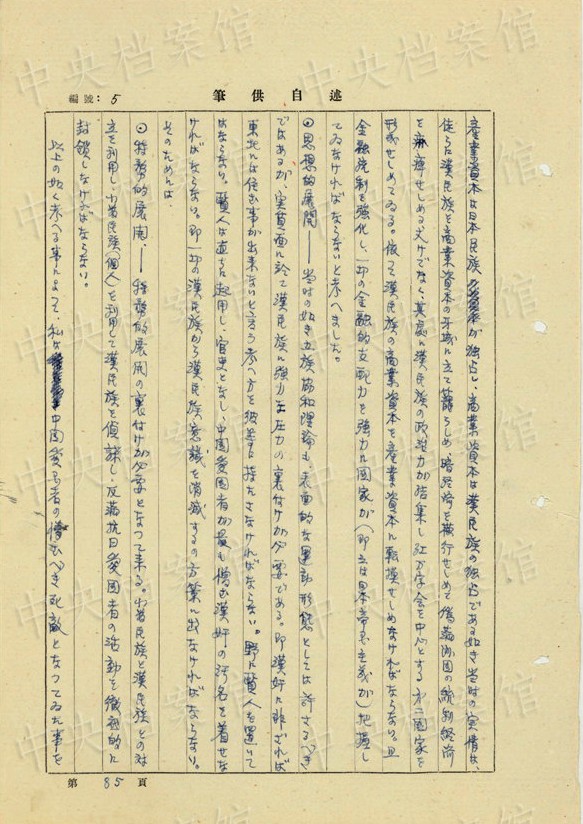 中央档案馆
編號：5
筆供自述
産業資本は日本民族が独占し、商業資本は漢民族の独占である如き当時の実情は、
徒らに漢民族を商業資本の牙城に立て籠らしめ、暗路を横行せしめて偽満洲国の統制経済
を麻痺せしめる丈けでなく、其処に漢民族の政治力が結集し紅万字会を中心とする第二国家を
形成せしめてゐる。依って漢民族の商業資本を産業資本に転換せしめなければならない。且
金融統制を強化し、一切の金融的支配力を強力に国家が（即ち日本帝国主義が）把握し
てゐなければならないと考へました。
◎思想的展開——当時の如き五族協和理論も、表面的な運動形態としては許さるべき
ではあるが、実質面に於て漢民族に強力な圧力の裏なけが必要である。即漢奸に非ざれば
東北には住む事が出来ないと言ふ考へ方を彼等に持たさなければならない。野に賢人を置いて
はならない。賢人は直ちに起用し、官吏となし、中国愛国者が最も憎む漢奸の汚名を着せな
ければならない。即一切の漢民族から漢民族意識を消滅するの方策に出なければならない。
そのためには、
◎特務的展開…特務的展開の裏なけが必要となって来る。少数民族と漢民族との対
立を利用し、少数民族（個人）を利用して漢民族を偵諜し、反満抗日愛国者の活動を徹底的に
封鎖しなければならない。
以上の如く考へる事によって、私は中国愛国者の憎むべき死敵となってゐた事を
第85頁